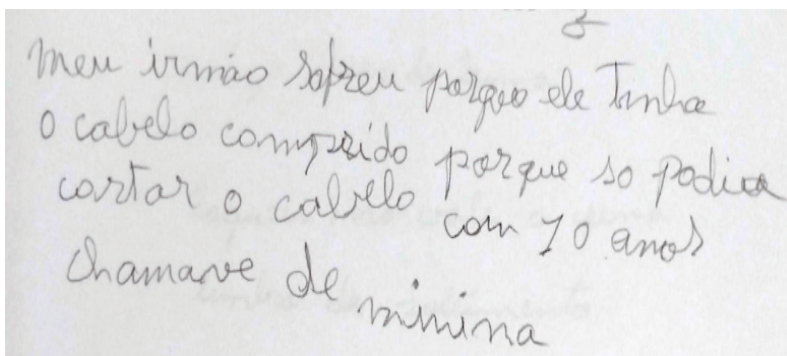 meu irmão sofreu porqeo ele Tinha
o cabelo comprido porque so podia
cortar o cabelo com 10 anos
chamave de minina